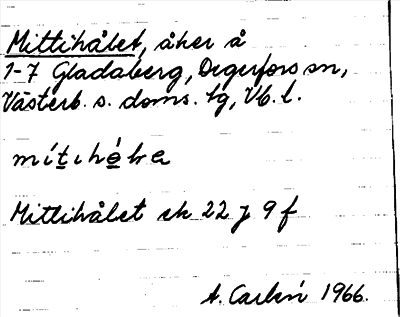 Mittihålet, åker å
1-7 Gladaberg, Degerfors sn,
Västerb. s. doms. tg, Vb. l.
Mittihålet ek 22 j 9 f
A. Carlsén 1966.